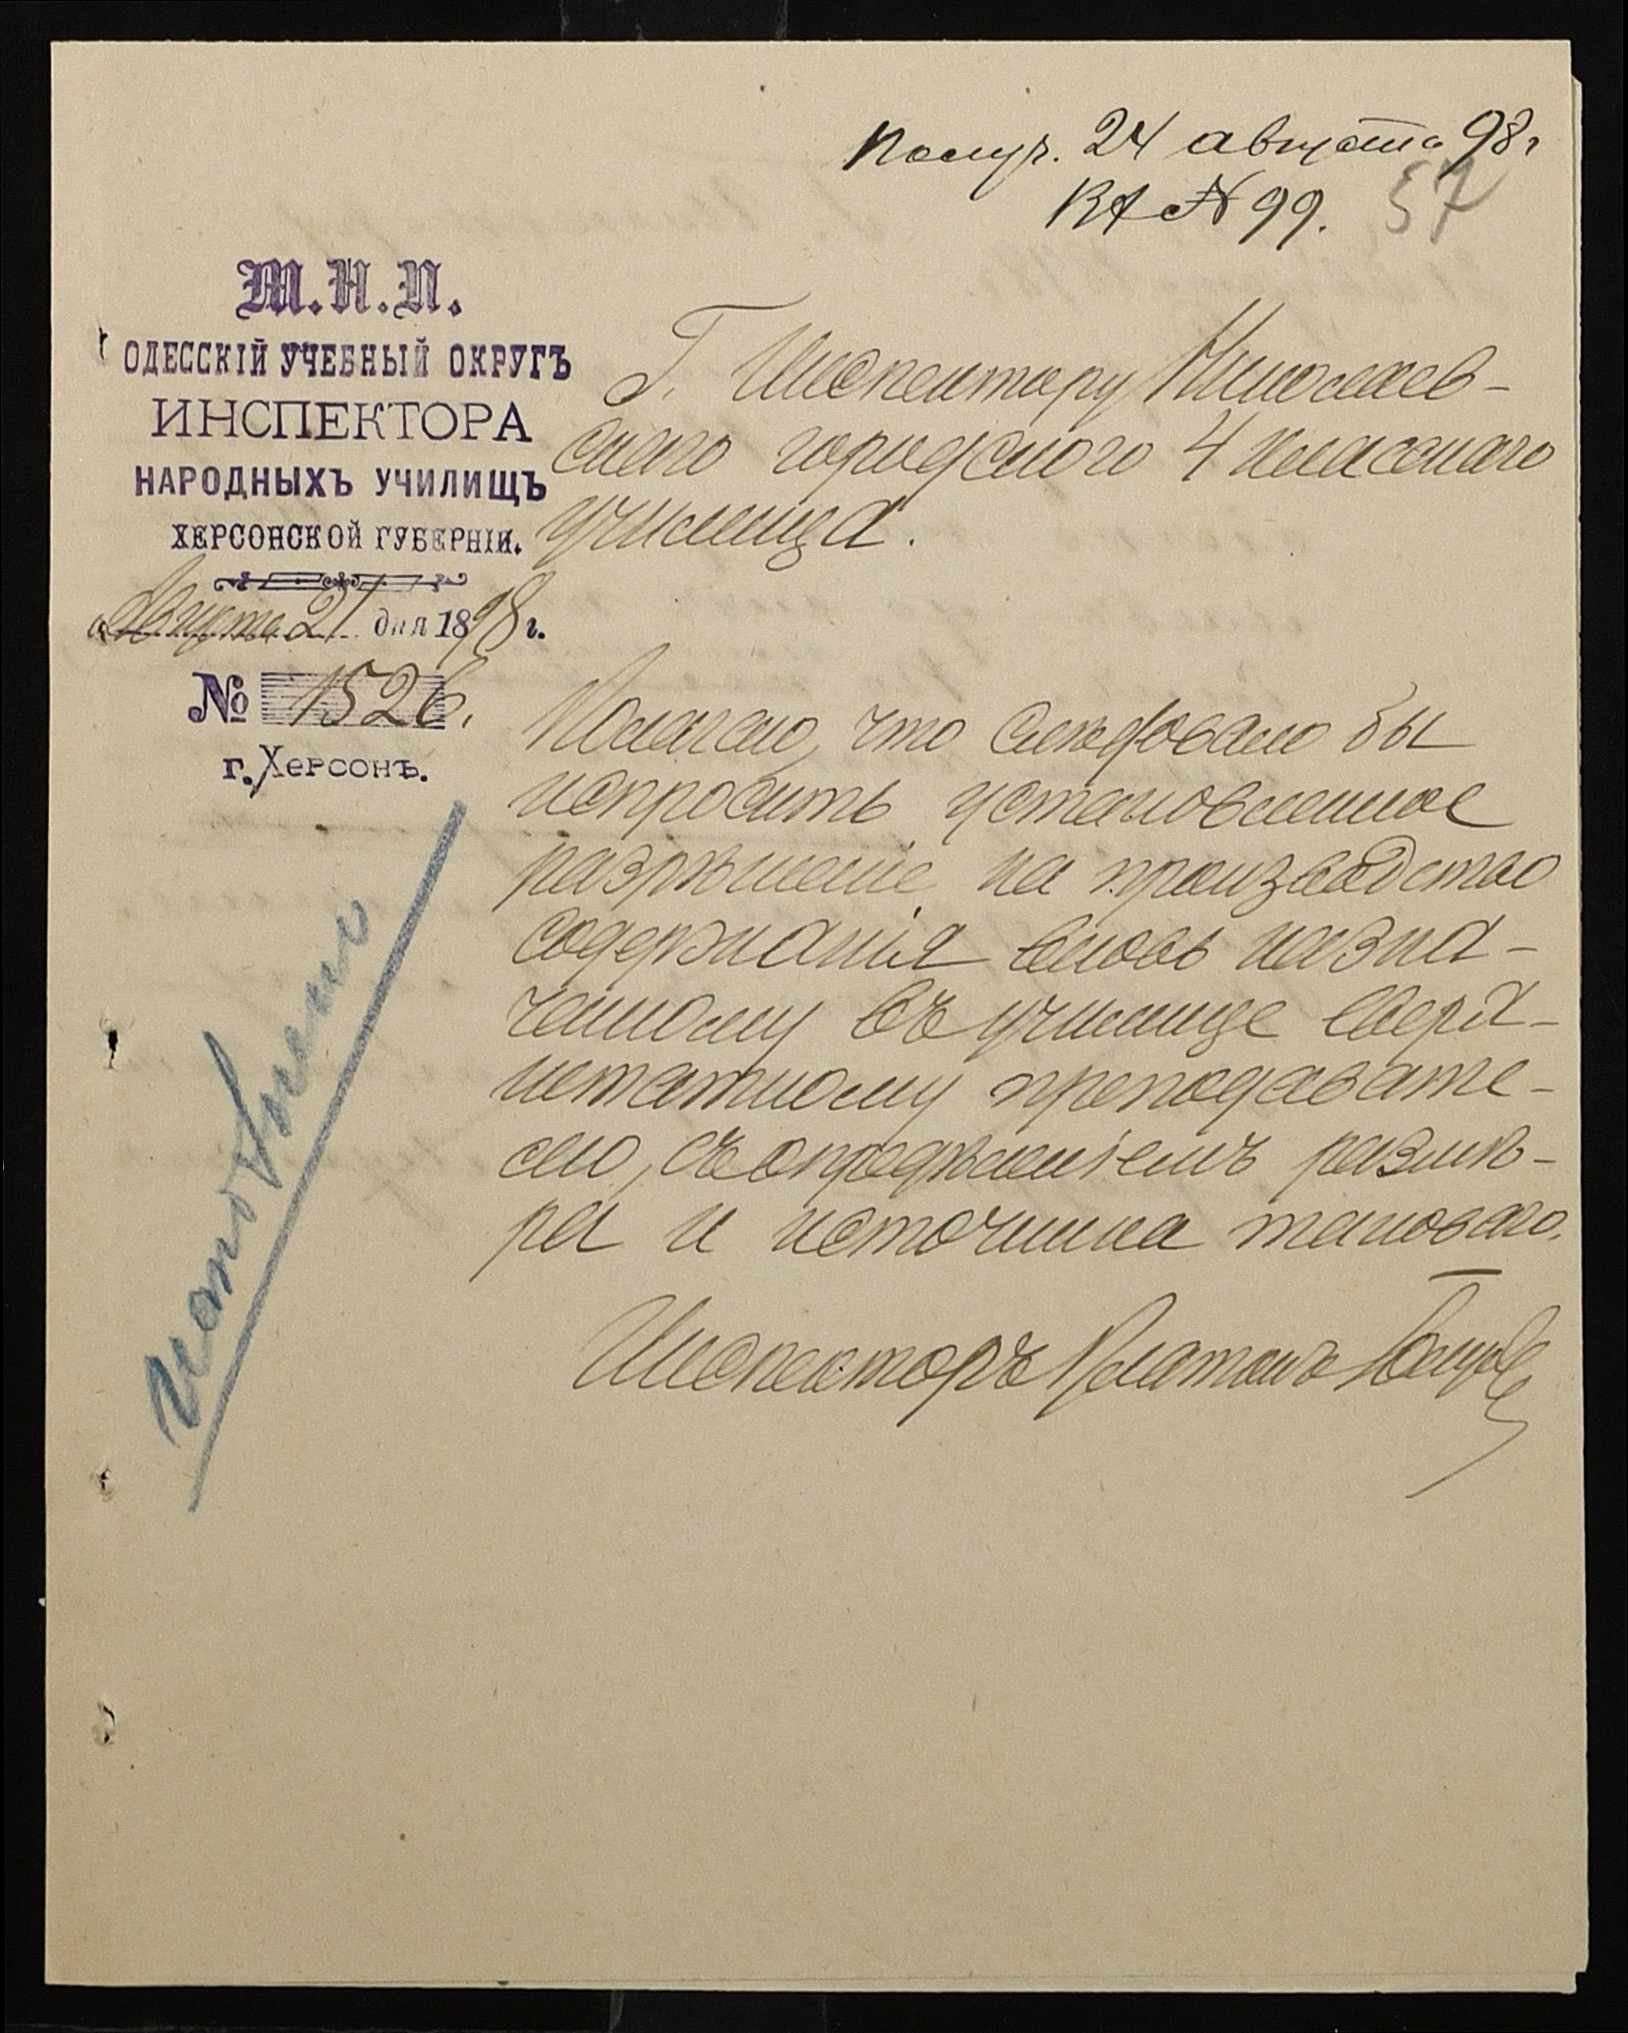 Получ. 24 августа 98 г
Вх № 99. 57
М. Н. П.
ОДЕССКІЙ УЧЕБНЫЙ ОКРУГЪ
ИНСПЕКТОРА
НАРОДНЫХЪ УЧИЛИЩЪ
ХЕРСОНСКОЙ ГУБЕРНІИ.
Августа 21 дня 1898 г.
№ 1526.
г. Херсонъ.
Г. Инспектору Николаев-
скаго городского 4 класснаго
училища.
Полагаю, что слѣдовало бы
испросить установленное
разрѣшеніе на производство
содержанія вновь назна-
ченному въ училище сверх-
штатному преподавате-
лю, съ опредѣленіемъ размѣ-
ра и источника таковаго.
Инспекторъ Платонъ
исполнено